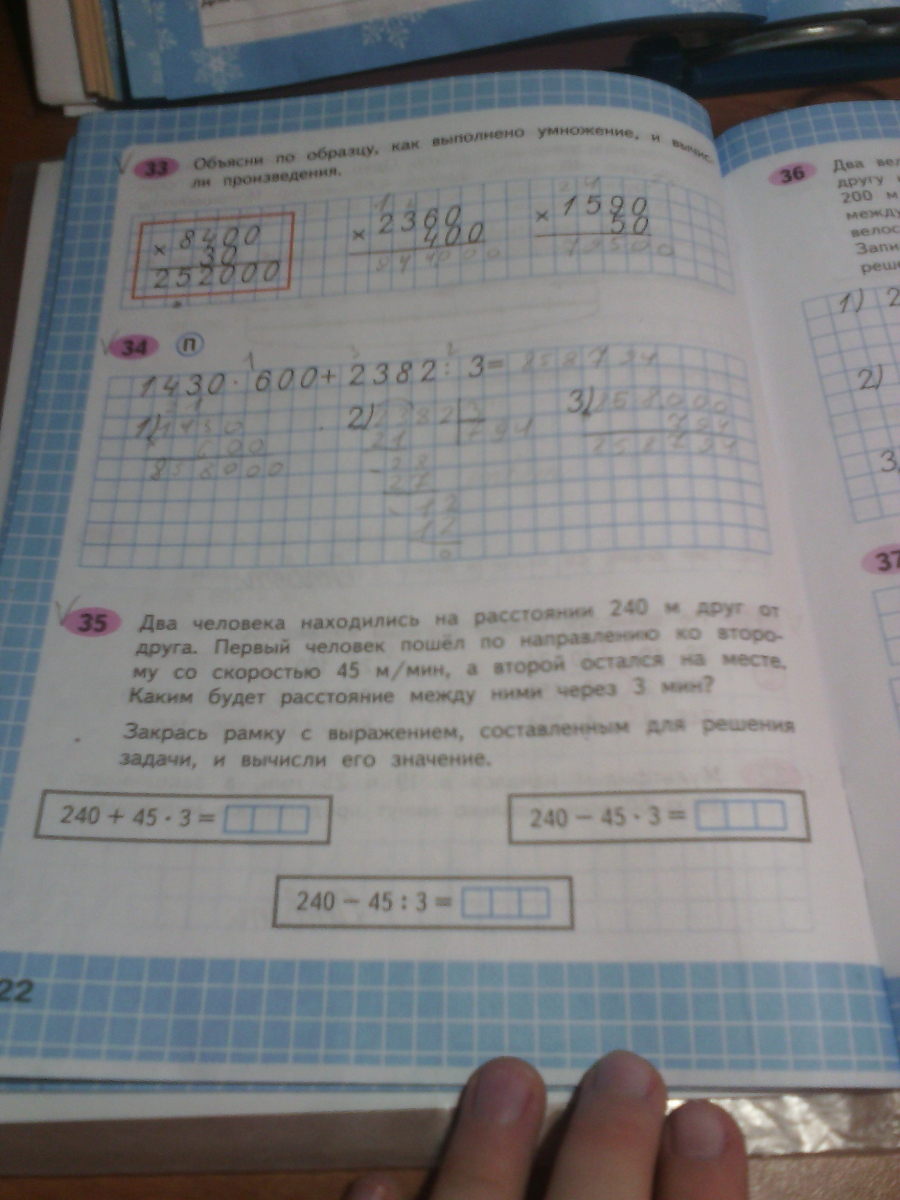 33 Объясни по образцу, как выполнено умножение, и вычис-
ли произведения.
× 8400
30
252000
× 2360
400
× 1590
50
79500
34 П
1430 · 600 + 2382 : 3 = 858794
1) 1430
600
858000
2) 2382 3
21 794
28
27
12
12
0
3) 858000
794
858794
35 Два человека находились на расстоянии 240 м друг от
друга. Первый человек пошёл по направлению ко второ-
му со скоростью 45 м/мин, а второй остался на месте.
Каким будет расстояние между ними через 3 мин?
Закрась рамку с выражением, составленным для решения
задачи, и вычисли его значение.
240 + 45 · 3 =
240 − 45 · 3 =
240 − 45 : 3 =
22
36 Два
другу
200 м
между
Запи
реше
1) 2
2)
3)
37